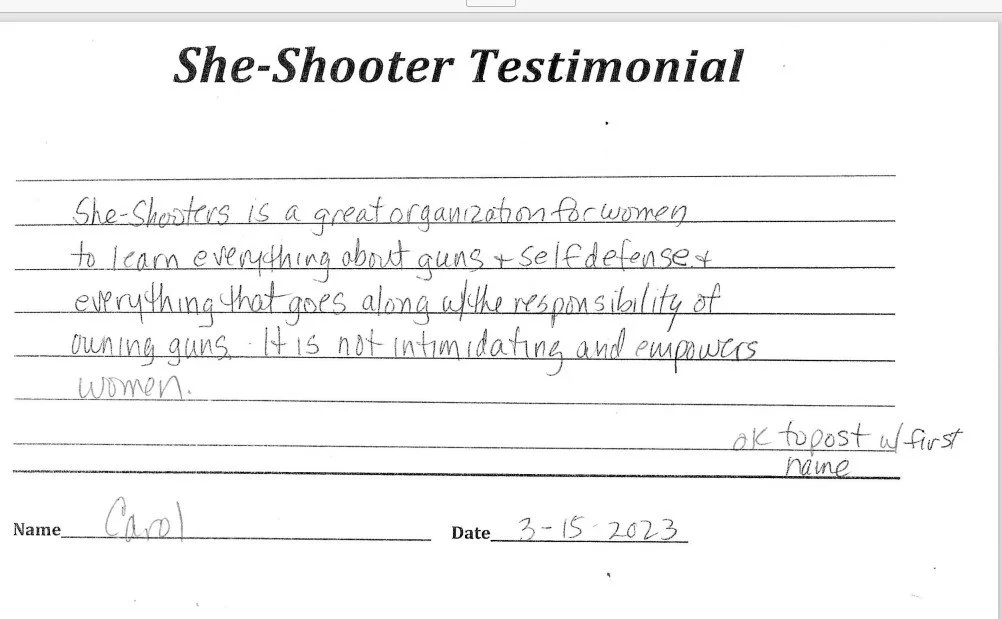 She-Shooter Testimonial
She-Shooters is a great organization for women
to learn everything about guns + self defense +
everything that goes along w/the responsibility of
owning guns. It is not intimidating and empowers
women.
ok to post w/ first
name
Name Carol Date 3-15-2023